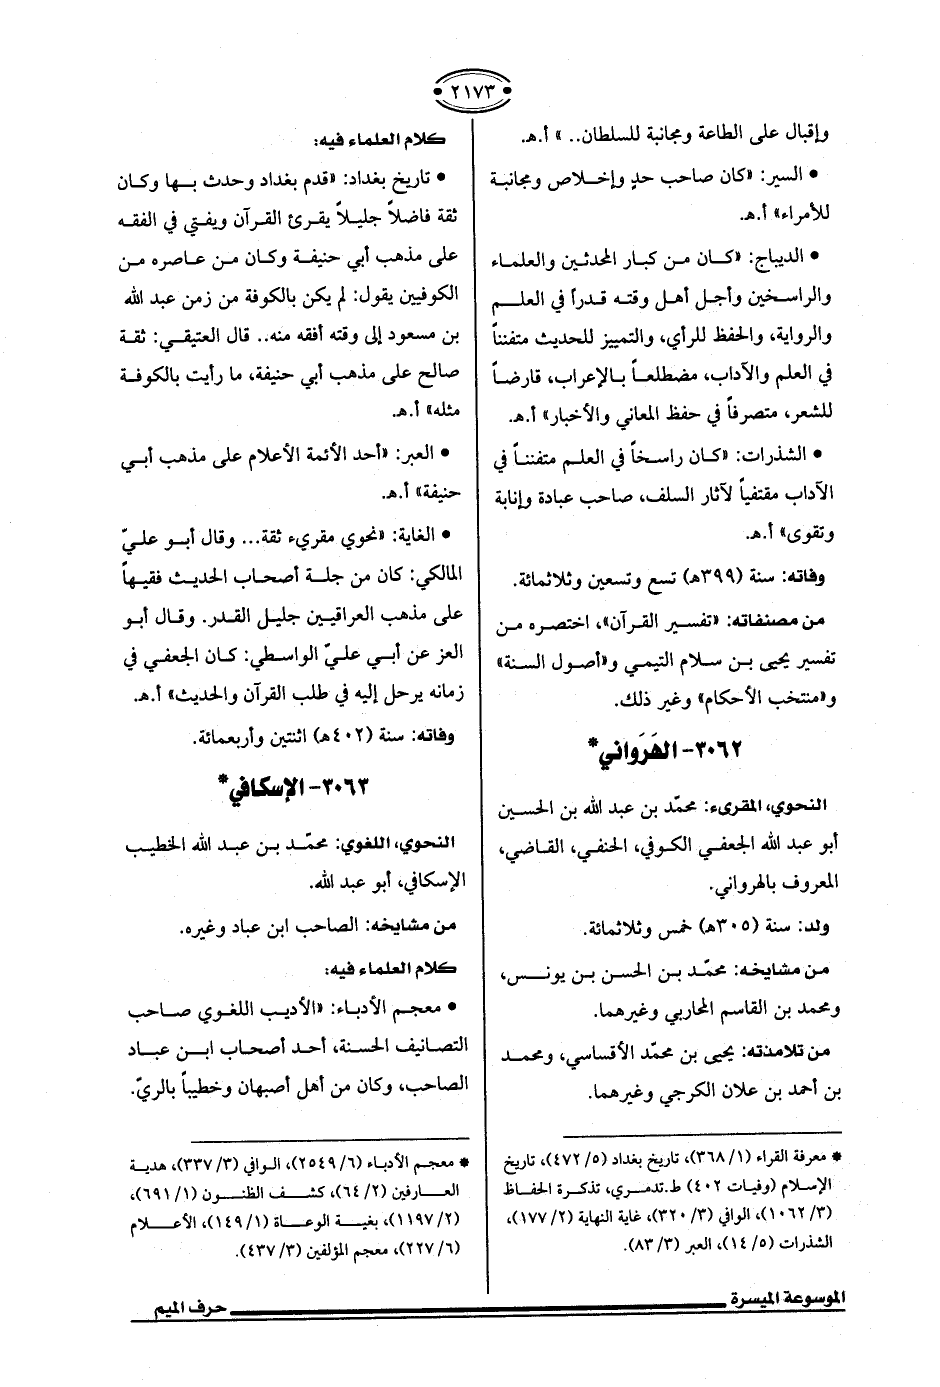 ٢١٧٣
وإقبال على الطاعة ومجانبة للسلطان.. » أ.هـ.
• السير: «كان صاحب حدٍ وإخلاص ومجانبة
للأمراء» أ.هـ.
• الديباج: «كان من كبار المحدثين والعلماء
والراسخين وأجل أهل وقته قدراً في العلم
والرواية، والحفظ للرأي، والتمييز للحديث متفنناً
في العلم والآداب، مضطلعاً بالإعراب، قارضاً
للشعر، متصرفاً في حفظ المعاني والأخبار» أ.هـ.
• الشذرات: «كان راسخاً في العلم متفنناً في
الآداب مقتفياً لآثار السلف، صاحب عبادة وإنابة
وتقوى» أ.هـ.
وفاته: سنة (٣٩٩هـ) تسع وتسعين وثلاثمائة.
من مصنفاته: «تفسير القرآن»، اختصره من
تفسير يحيى بن سلام التيمي و«أصول السنة»
و«منتخب الأحكام» وغير ذلك.
٣٠٦٢- الهَرَواني*
النحوي، المقرىء: محمّد بن عبد الله بن الحسين
أبو عبد الله الجعفي الكوفي، الحنفي، القاضي،
المعروف بالهرواني.
ولد: سنة (٣٠٥هـ) خمس وثلاثمائة.
من مشايخه: محمّد بن الحسن بن يونس،
ومحمد بن القاسم المحاربي وغيرهما.
من تلامذته: يحيى بن محمّد الأقساسي، ومحمد
بن أحمد بن علان الكرجي وغيرهما.
* معرفة القراء (١/ ٣٦٨)، تاريخ بغداد (٥/ ٤٧٢)، تاريخ
الإسلام (وفيات ٤٠٢) ط.تدمري، تذكرة الحفاظ
(٣/ ١٠٦٢)، الوافي (٣/ ٣٢٠)، غاية النهاية (٢/ ١٧٧)،
الشذرات (٥/ ١٤)، العبر (٣/ ٨٣).
كلام العلماء فيه:
• تاريخ بغداد: «قدم بغداد وحدث بها وكان
ثقة فاضلاً جليلاً يقرئ القرآن ويفتي في الفقه
على مذهب أبي حنيفة وكان من عاصره من
الكوفيين يقول: لم يكن بالكوفة من زمن عبد الله
بن مسعود إلى وقته أفقه منه.. قال العتيقي: ثقة
صالح على مذهب أبي حنيفة، ما رأيت بالكوفة
مثله» أ.هـ.
• العبر: «أحد الأئمة الأعلام على مذهب أبي
حنيفة» أ.هـ.
• الغاية: «نحوي مقريء ثقة... وقال أبو عليّ
المالكي: كان من جلة أصحاب الحديث فقيهاً
على مذهب العراقيين جليل القدر. وقال أبو
العز عن أبي عليّ الواسطي: كان الجعفي في
زمانه يرحل إليه في طلب القرآن والحديث» أ.هـ.
وفاته: سنة (٤٠٢هـ) اثنتين وأربعمائة.
٣٠٦٣- الإسكافي*
النحوي، اللغوي: محمّد بن عبد الله الخطيب
الإسكافي، أبو عبد الله.
من مشايخه: الصاحب ابن عباد وغيره.
كلام العلماء فيه:
• معجم الأدباء: «الأديب اللغوي صاحب
التصانيف الحسنة، أحد أصحاب ابن عباد
الصاحب، وكان من أهل أصبهان وخطيباً بالريّ.
* معجم الأدباء (٦/ ٢٥٤٩)، الوافي (٣/ ٣٣٧)، هدية
العارفين (٢/ ٦٤)، كشف الظنون (١/ ٦٩١)،
(٢/ ١١٩٧)، بغية الوعاة (١/ ١٤٩)، الأعلام
(٦/ ٢٢٧)، معجم المؤلفين (٣/ ٤٣٧).
الموسوعة الميسرة
حرف الميم